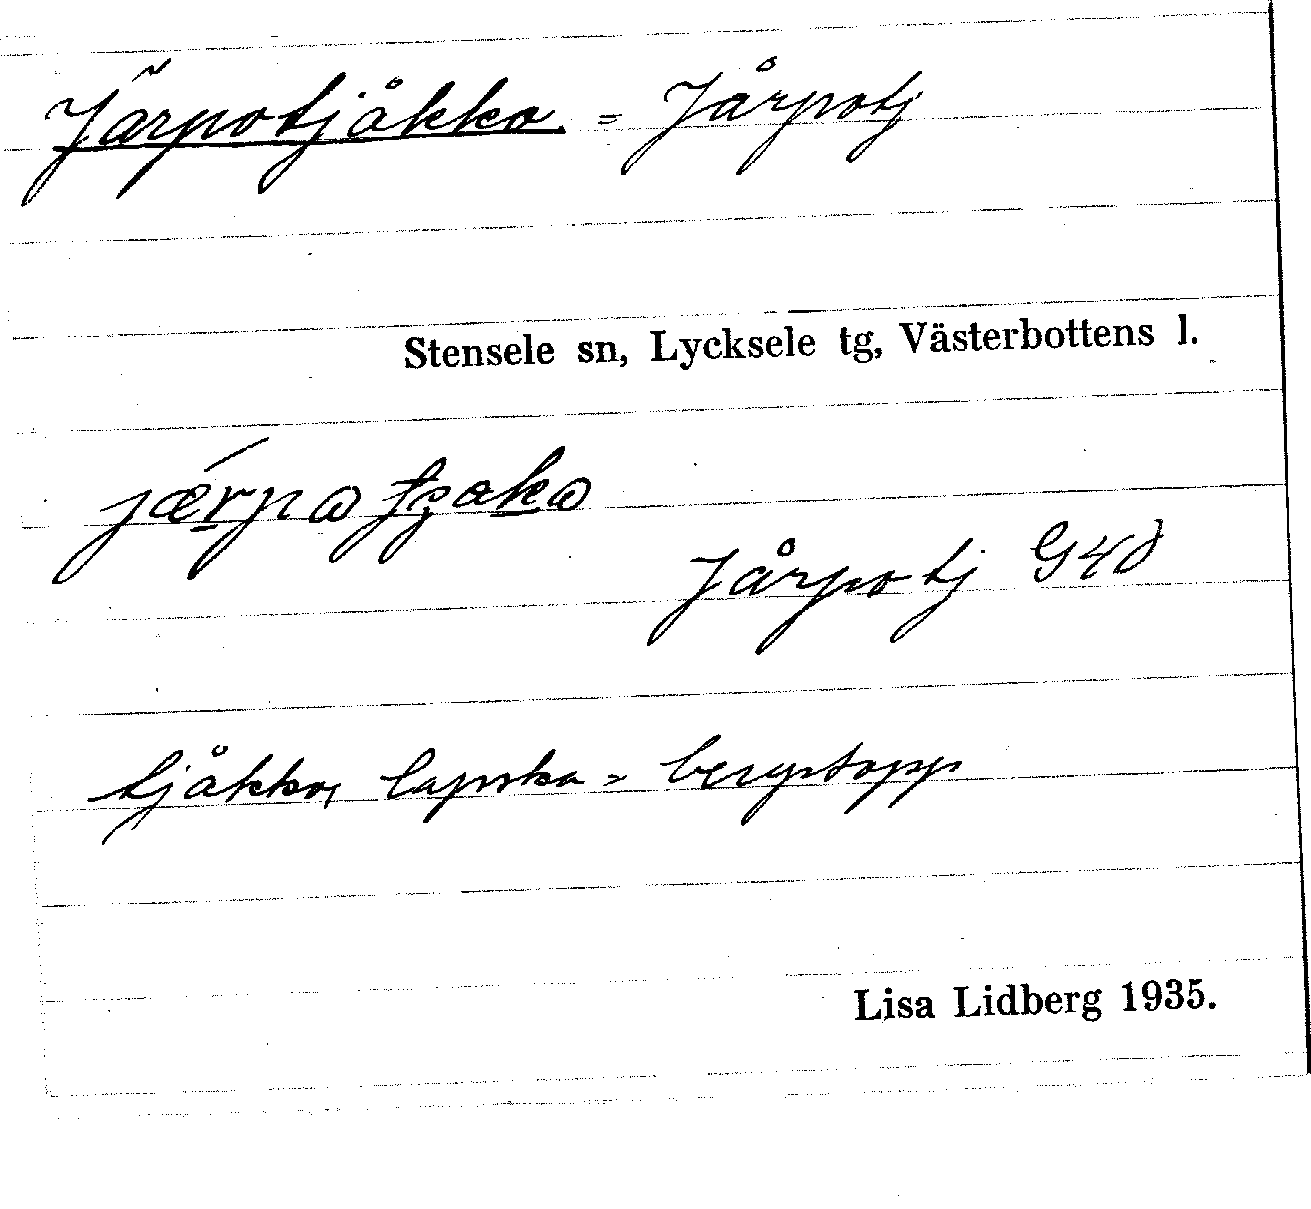 Järpotjåkko. = Jårpotj
Stensele sn, Lycksele tg, Västerbottens l.
Jårpotj G40
tjåkko, lapska = bergstopp
Lisa Lidberg 1935.